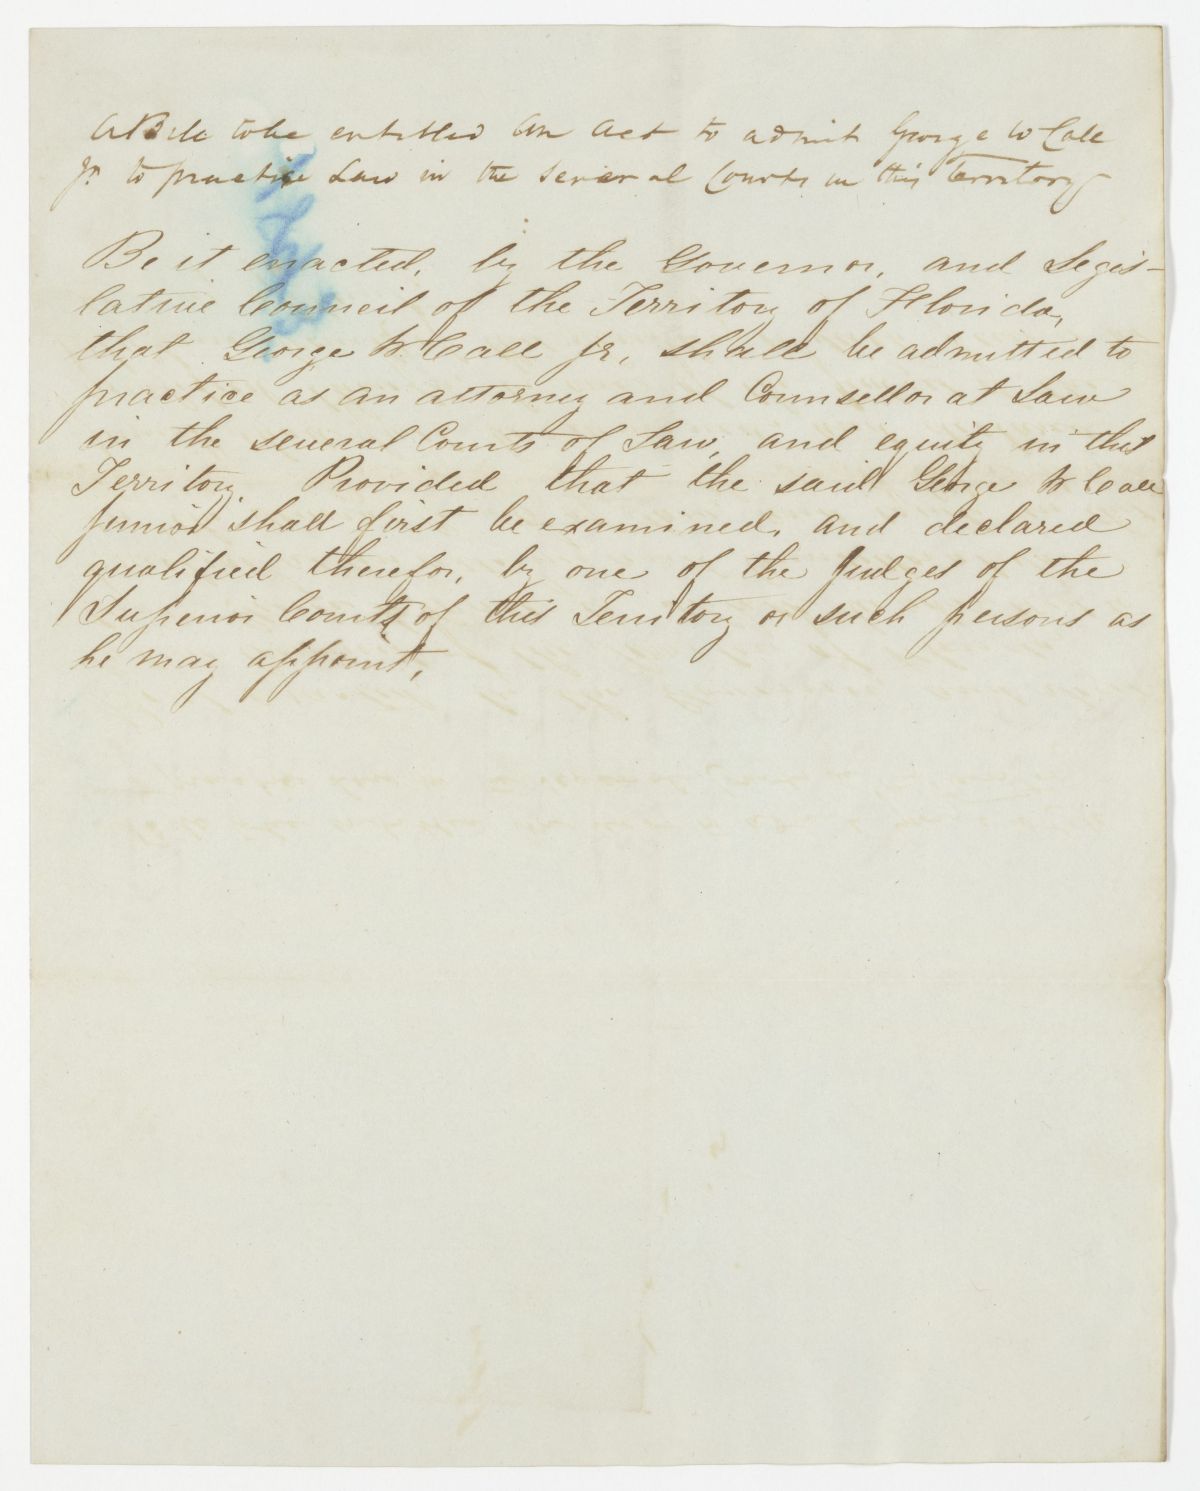 A Bill to be entitled An Act to admit George W Call
Jr. to practice Law in the several Courts in this Territory
Be it enacted, by the Governor, and Legis-
lative Council of the Territory of Florida,
that George W. Call Jr, shall be admitted to
practice as an attorney and Counsellor at Law
in the several Courts of Law, and equity in this
Territory. Provided that the said George W Call
Junior shall first be examined, and declared
qualified therefor, by one of the Judges of the
Superior Courts of this Territory or such persons as
he may appoint,